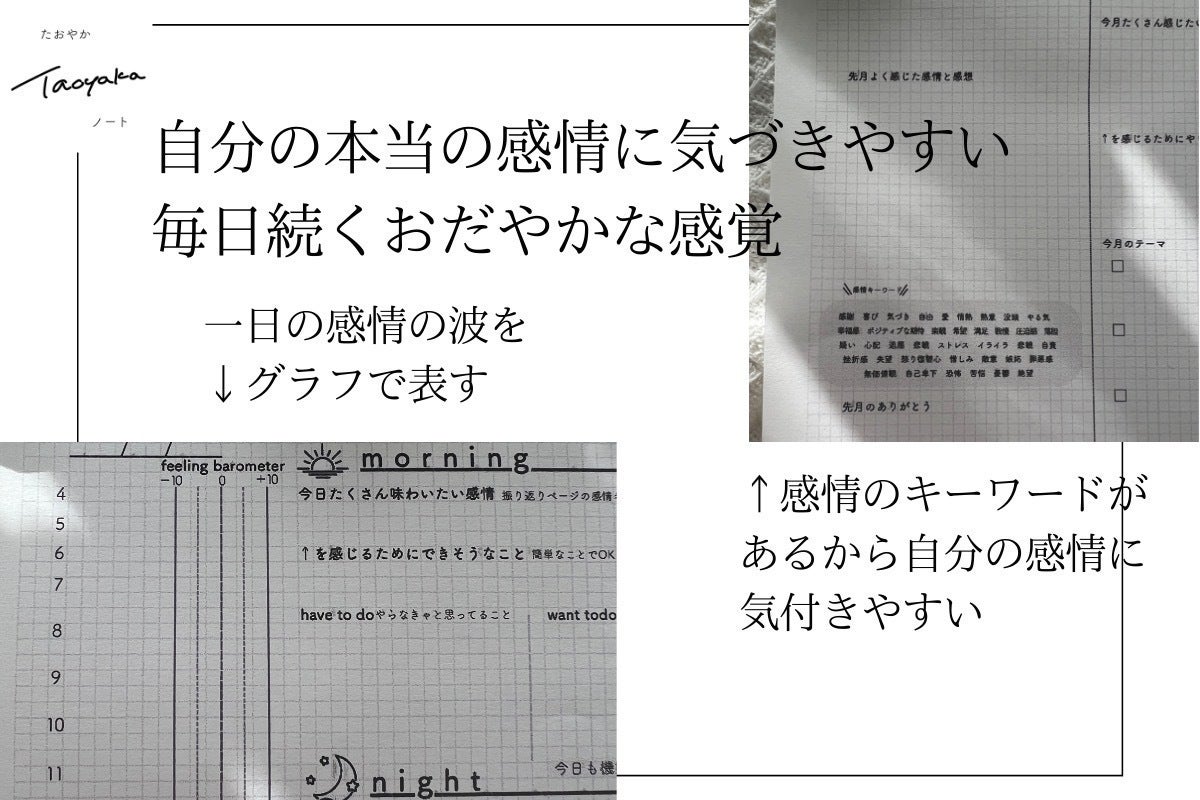 たおやか
Taoyaka
ノート
自分の本当の感情に気づきやすい
毎日続くおだやかな感覚
一日の感情の波を
↓グラフで表す
先月よく感じた感情と感想
感情キーワード
感謝 喜び 気づき 自由 愛 情熱 熱意 没頭 やる気
幸福感 ポジティブな期待 楽観 希望 満足 退屈 圧迫感 落胆
疑い 心配 退屈 悲観 ストレス イライラ 悲観 自責
挫折感 失望 怒り復讐心 憎しみ 敵意 嫉妬 罪悪感
無価値観 自己卑下 恐怖 苦悩 憂鬱 絶望
先月のありがとう
今月たくさん感じたい
↑を感じるためにや
今月のテーマ
↑感情のキーワードが
あるから自分の感情に
気付きやすい
feeling barometer
-10 0 +10
4
5
6
7
8
9
10
11
morning
今日たくさん味わいたい感情 振り返りページの感情
↑を感じるためにできそうなこと 簡単なことでOK
have to doやらなきゃと思ってること
want todo
night
今日も機